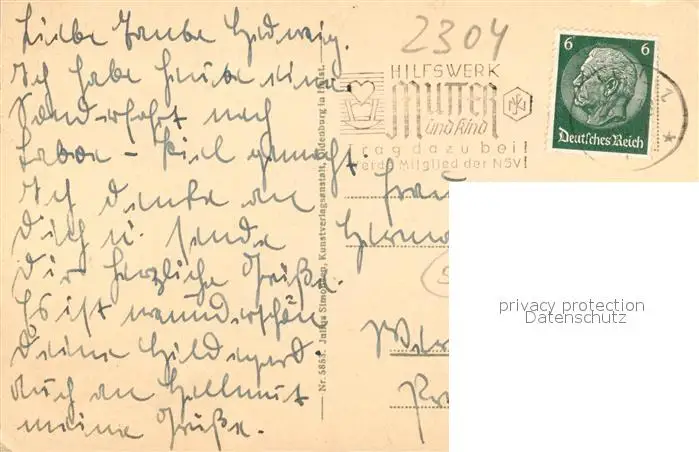 Liebe Tante Hedwig.
Ich habe heute eine
Sonderfahrt nach
Laboe - Kiel gemacht.
Ich denke an
Dich u. sende
Dir herzliche Grüße.
Es ist wunderschön.
Deine Hildegard.
Auch an Hellmut
meine Grüße.
2304
HILFSWERK
MUTTER
und Kind
Trag dazu bei!
Werde Mitglied der NSV!
6 6
Deutsches Reich
Nr. 5853. Julius Simonsen, Kunstverlagsanstalt, Oldenburg in Holst.
Frau
privacy protection
Datenschutz